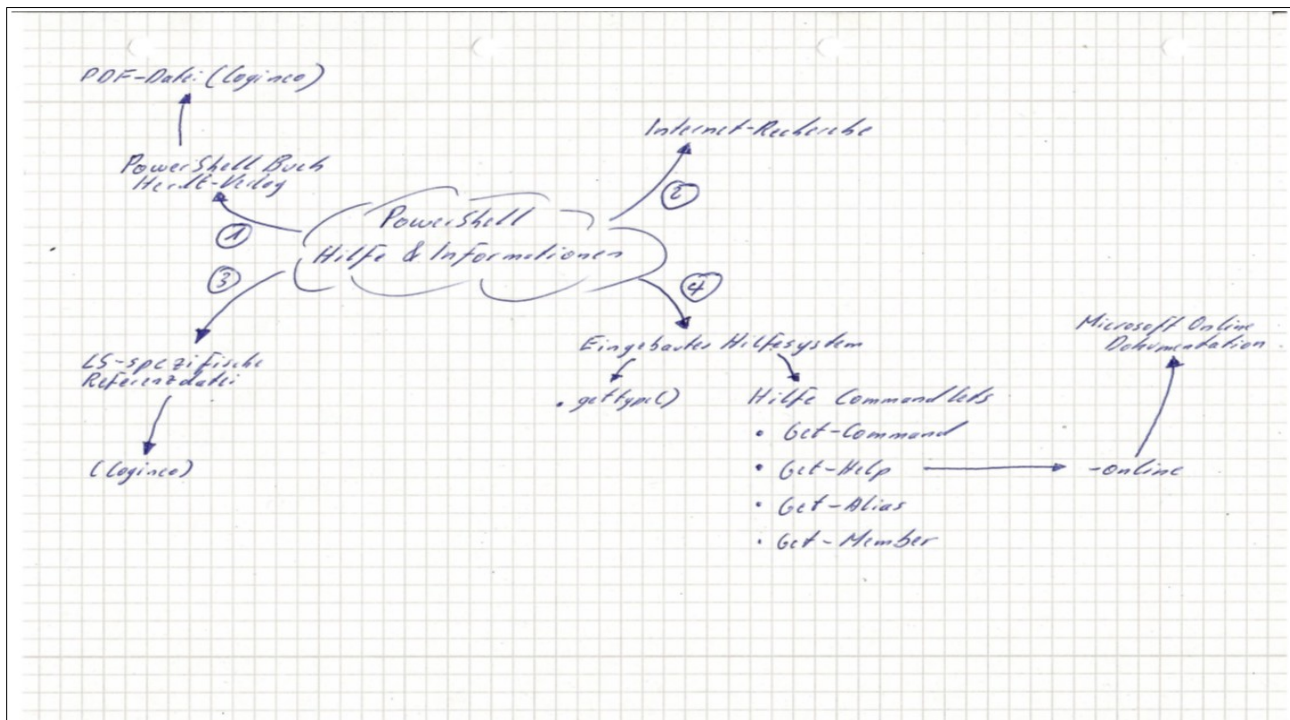 PDF-Datei (Logineo)
PowerShell Buch
Herdt-Verlag
1
Internet-Recherche
2
PowerShell
Hilfe & Informationen
3
4
LS-spezifische
Referenzdatei
(Logineo)
Eingebautes Hilfesystem
• .gettype()
Hilfe Commandlets
• Get-Command
• Get-Help
• Get-Alias
• Get-Member
-online
Microsoft Online
Dokumentation